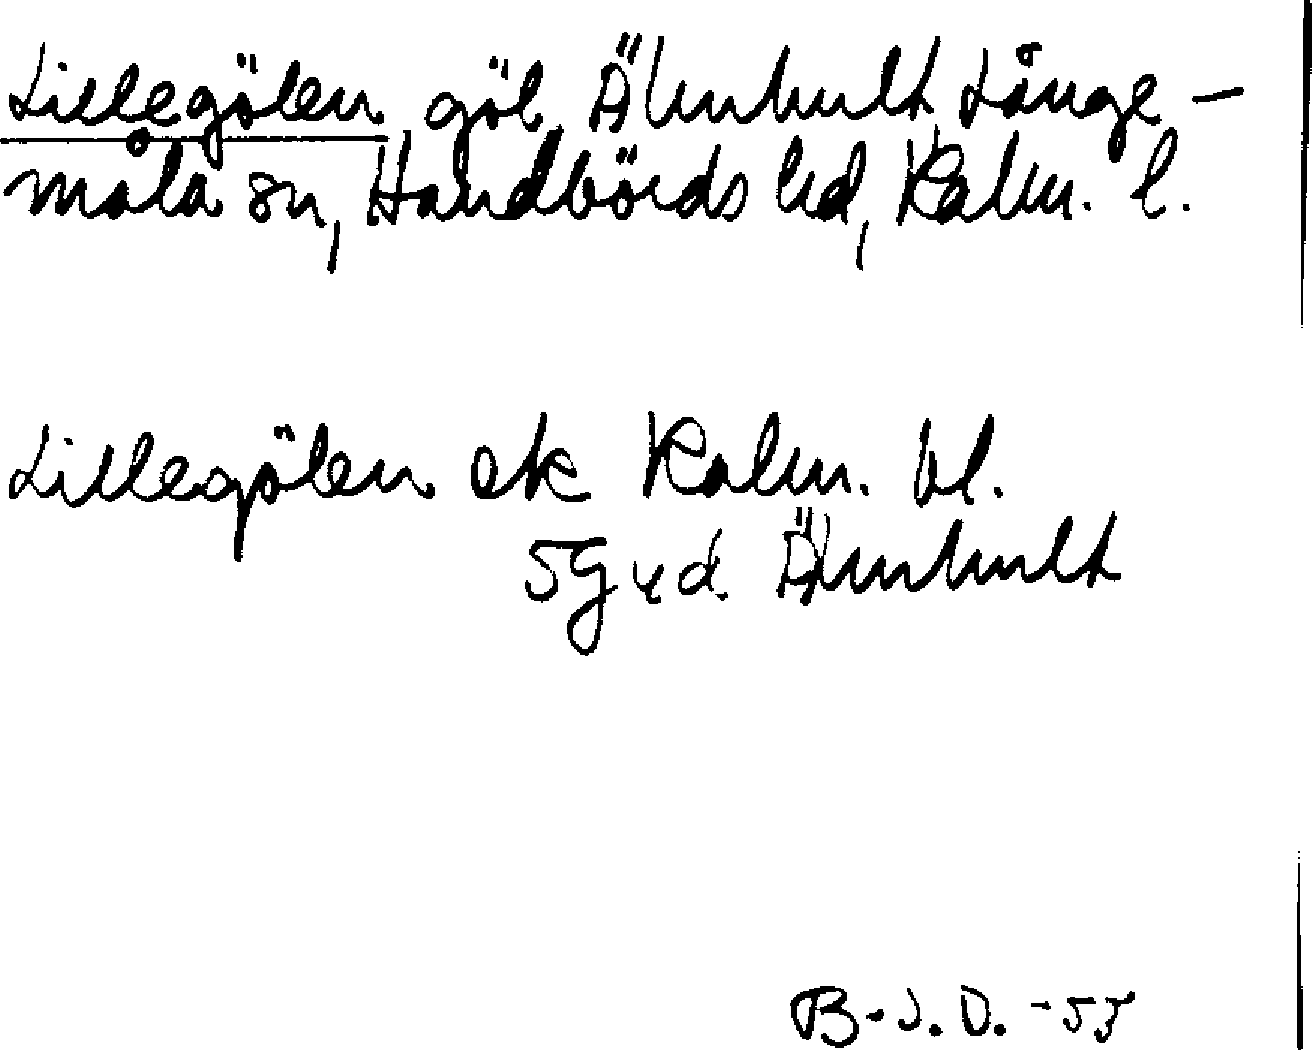 Lillegölen, göl, Älmhult Långe-
måla sn, Handbörds hd, Kalm. l.
Lillegölen ek Kalm. bl.
5g vd. Älmhult
B.J.O. -55